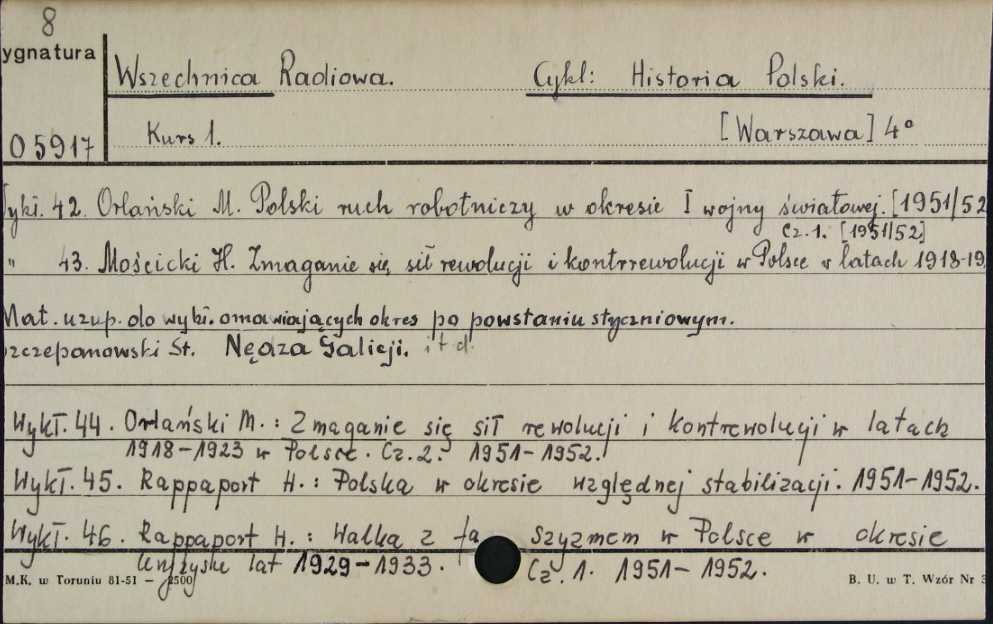 8
ygnatura
Wszechnica Radiowa. Cykl: Historia Polski.
05917 Kurs 1. [Warszawa] 4°
ykł. 42. Orlański M. Polski ruch robotniczy w okresie I wojny światowej. [1951/52
Cz. 1. [1951/52]
" 43. Mościcki H. Zmaganie się sił rewolucji i kontrrewolucji w Polsce w latach 1918-19
Mat. uzup. do wykł. omawiających okres po powstaniu styczniowym.
zczepanowski St. Nędza Galicji. i t d.
Wykł. 44. Orlański M.: Zmaganie się sił rewolucji i kontrewolucji w latach
1918-1923 w Polsce. Cz. 2. 1951-1952.
Wykł. 45. Rappaport H.: Polska w okresie względnej stabilizacji. 1951-1952.
Wykł. 46. Rappaport H.: Walka z fa szyzmem w Polsce w okresie
lat 1929-1933. Cz. 1. 1951-1952.
M.K. w Toruniu 81-51 — 2500 B. U. w T. Wzór Nr 3